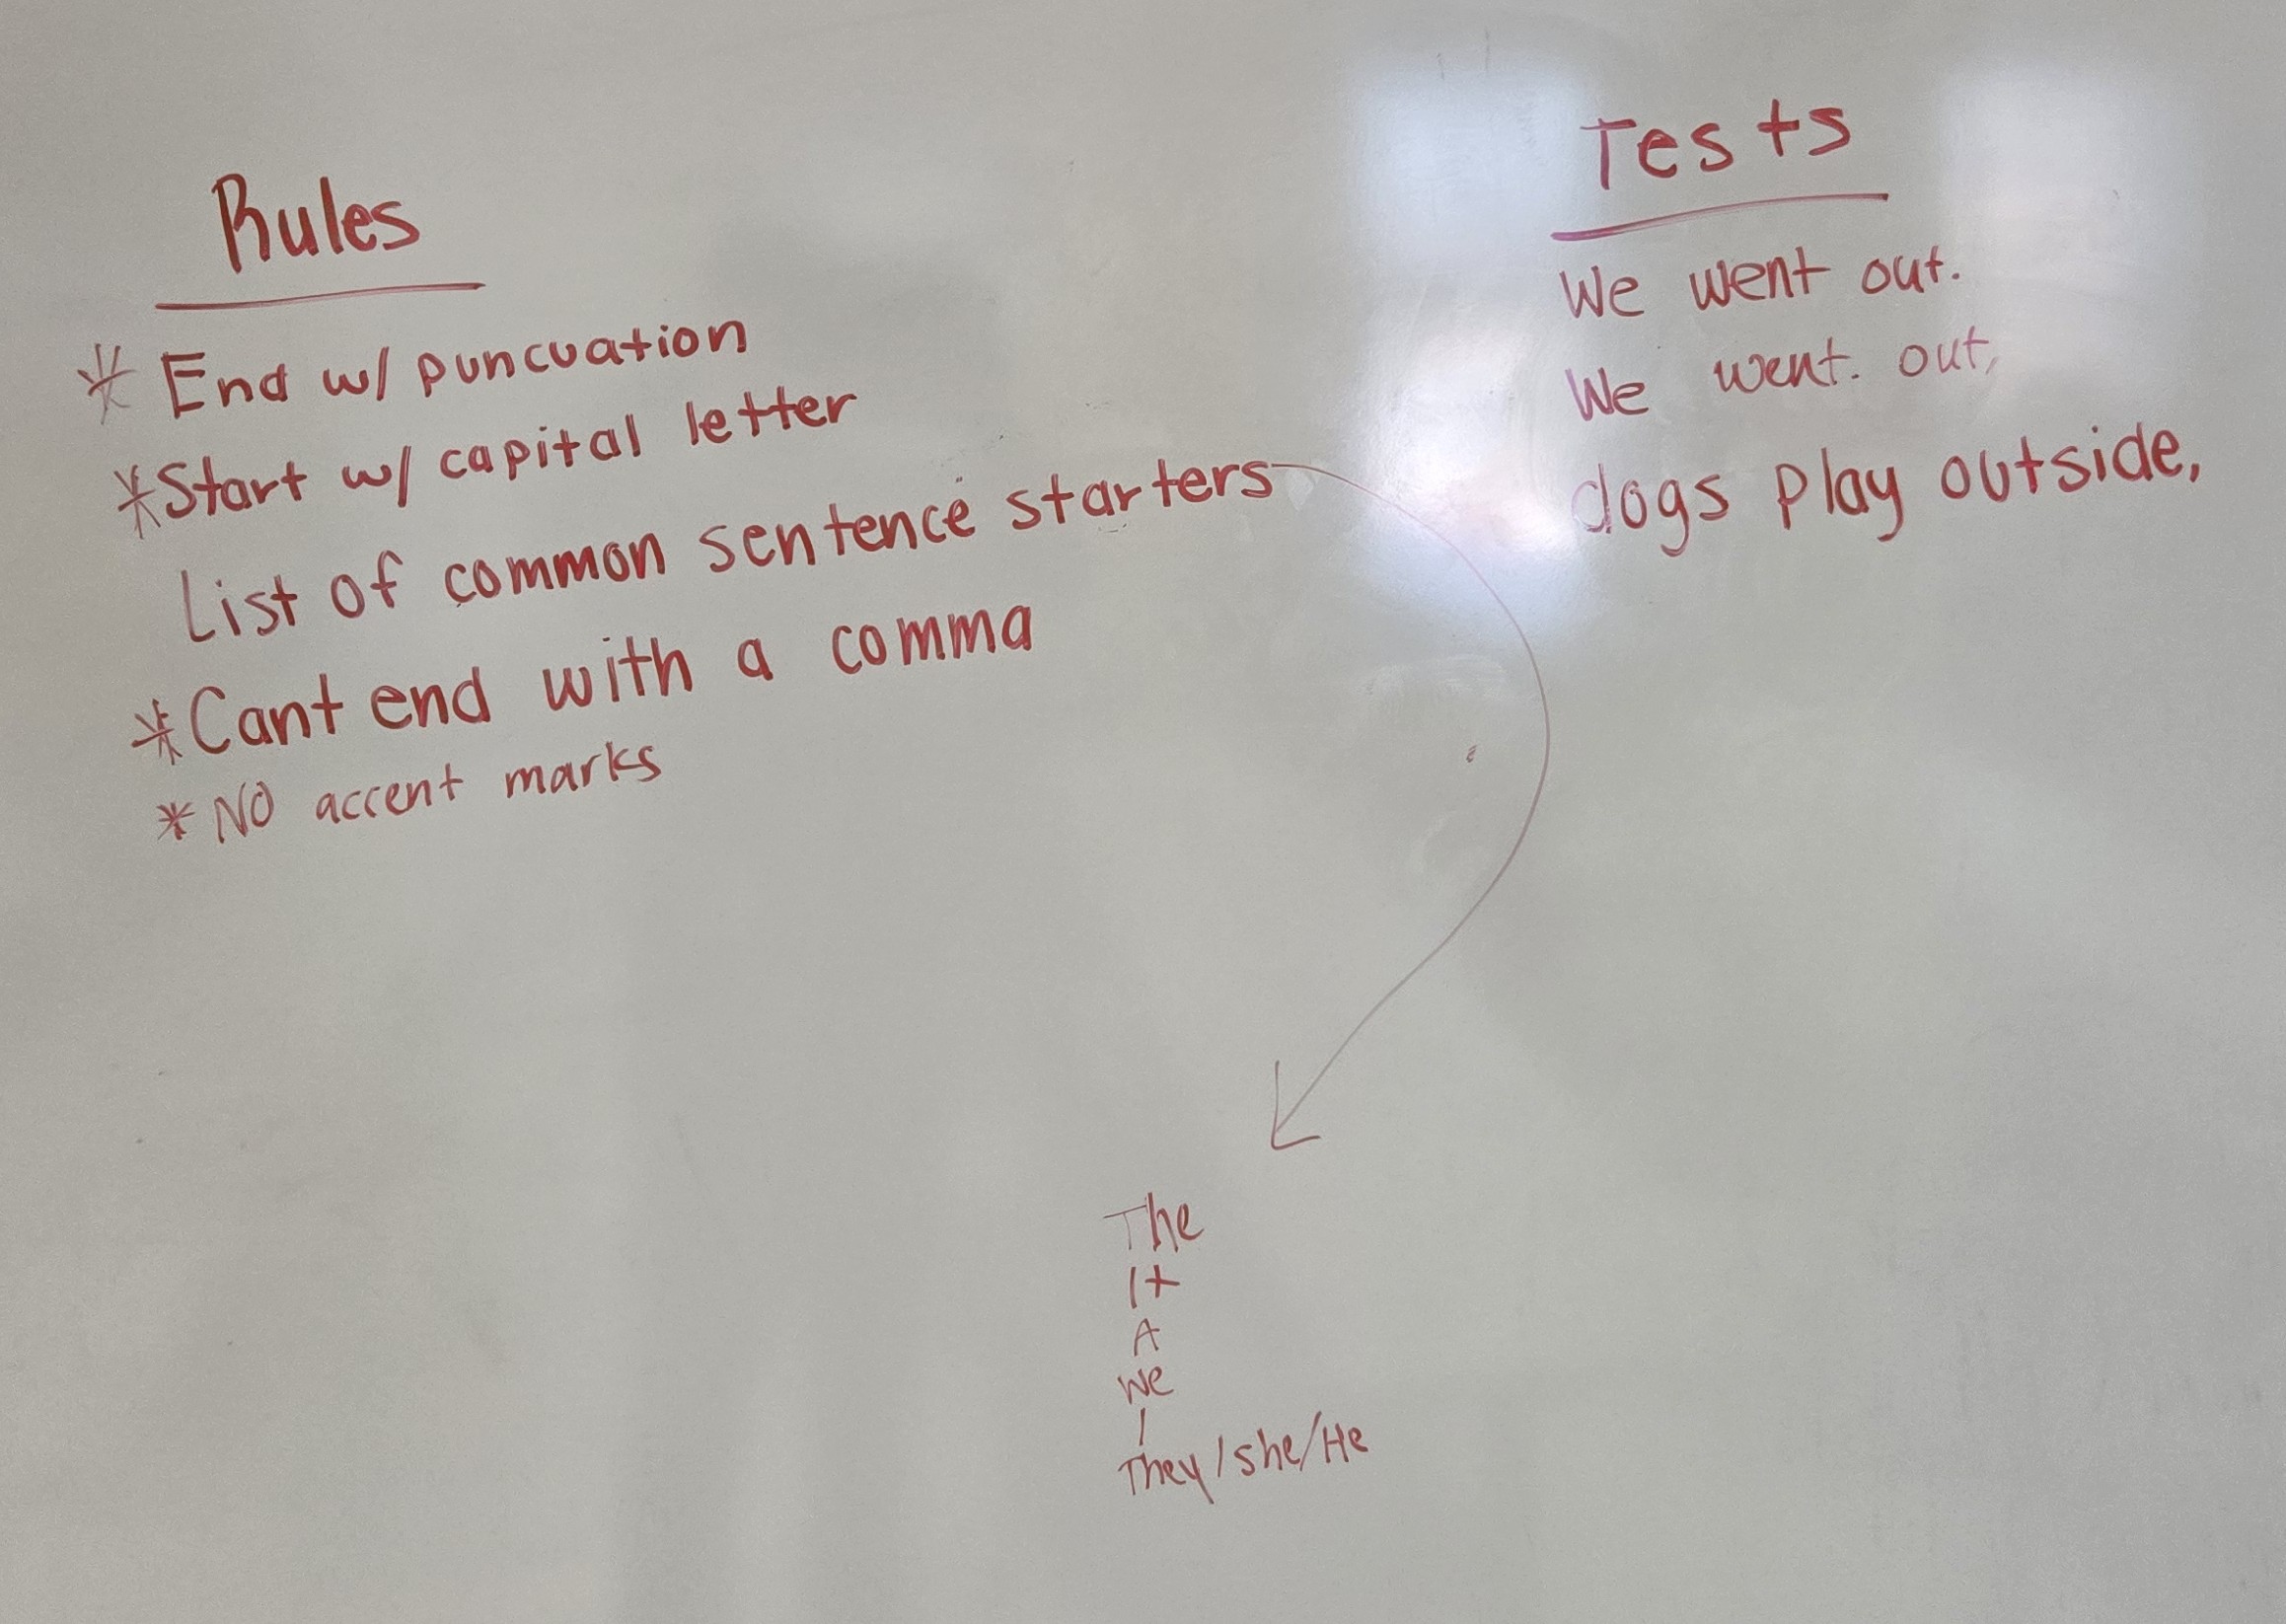 Rules
* End w/ puncuation
* Start w/ capital letter
List of common sentence starters
* Cant end with a comma
* NO accent marks
Tests
We went out.
We went. out,
dogs play outside,
The
It
A
We
I
They/she/He